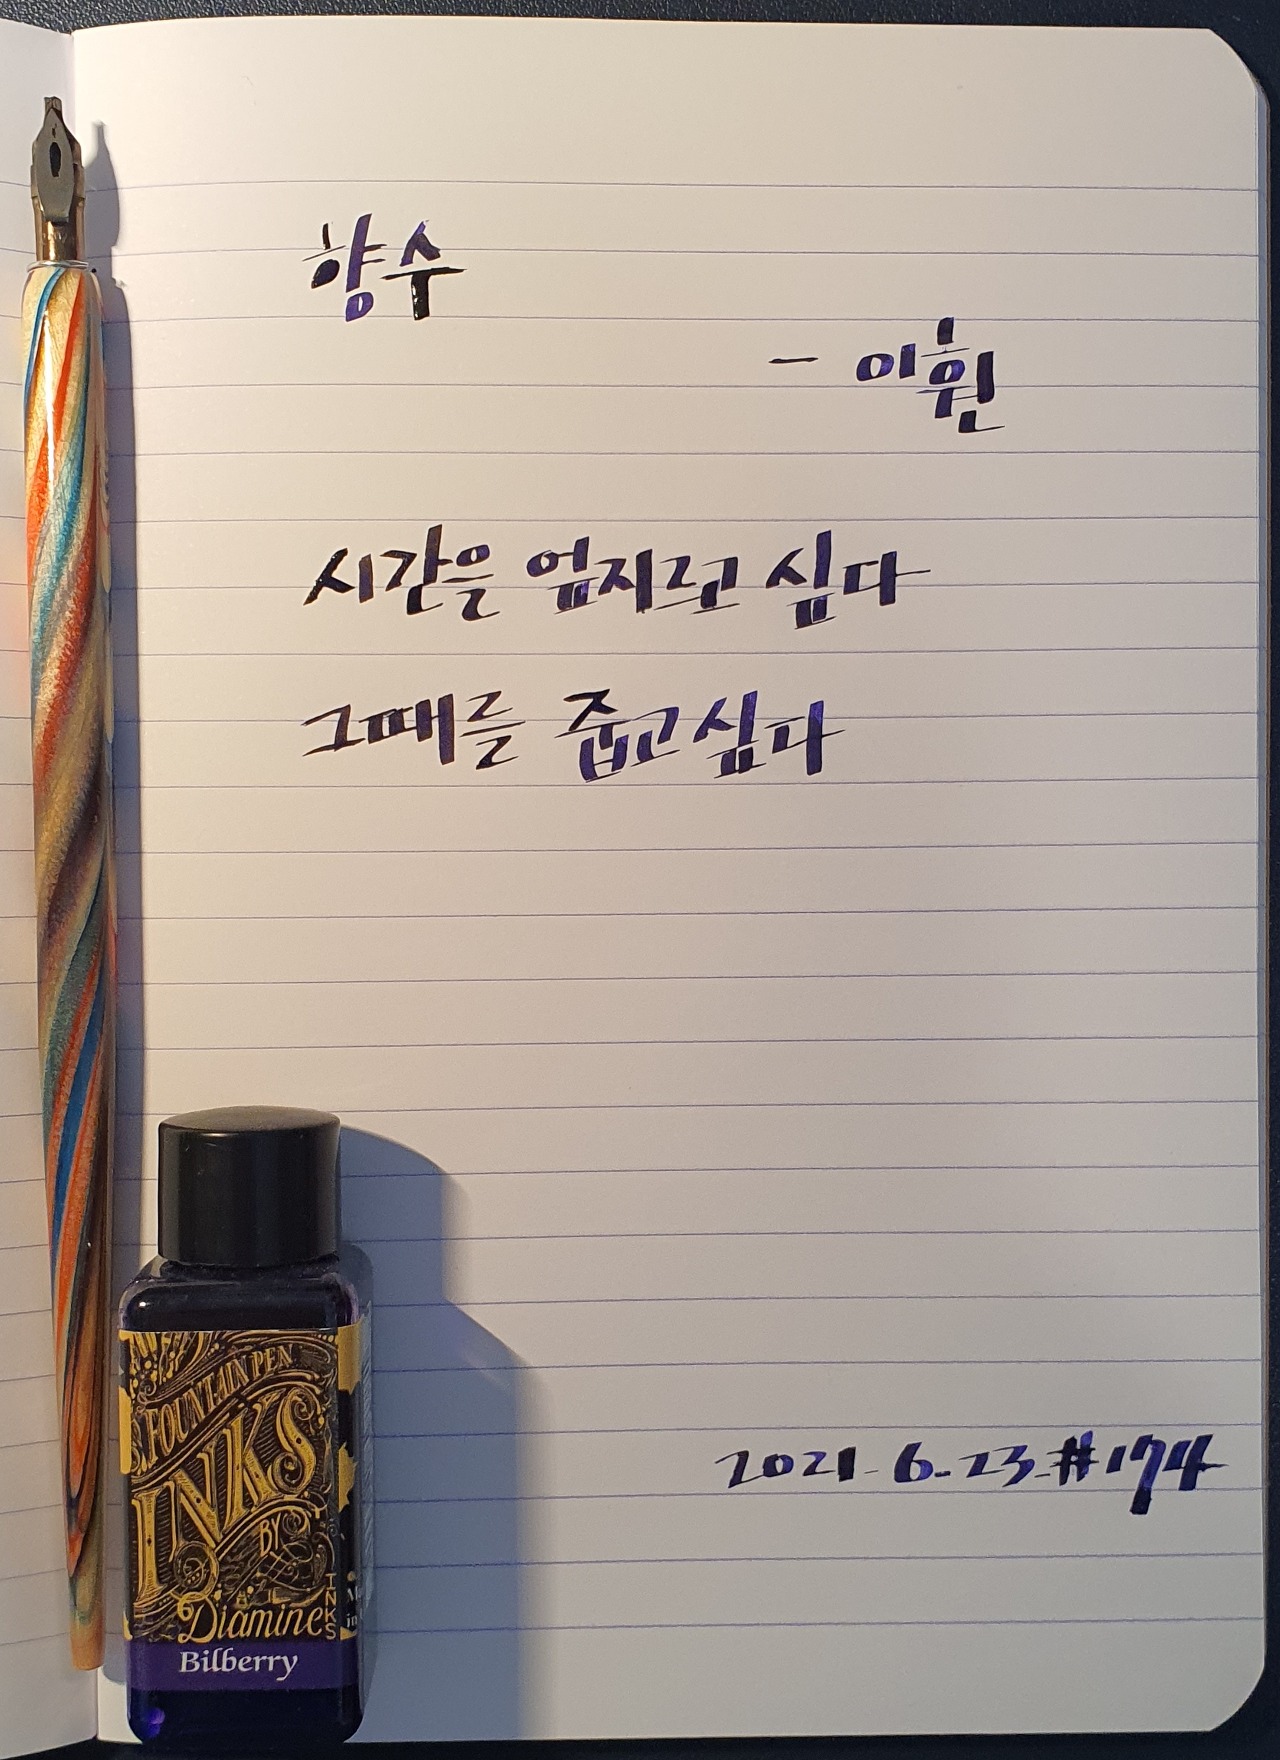 향수
- 이훤
시간을 엎지르고 싶다
그때를 줍고싶다
2021. 6. 23. #174
FOUNTAIN PEN
INKS
BY
Diamine
INKS
Bilberry